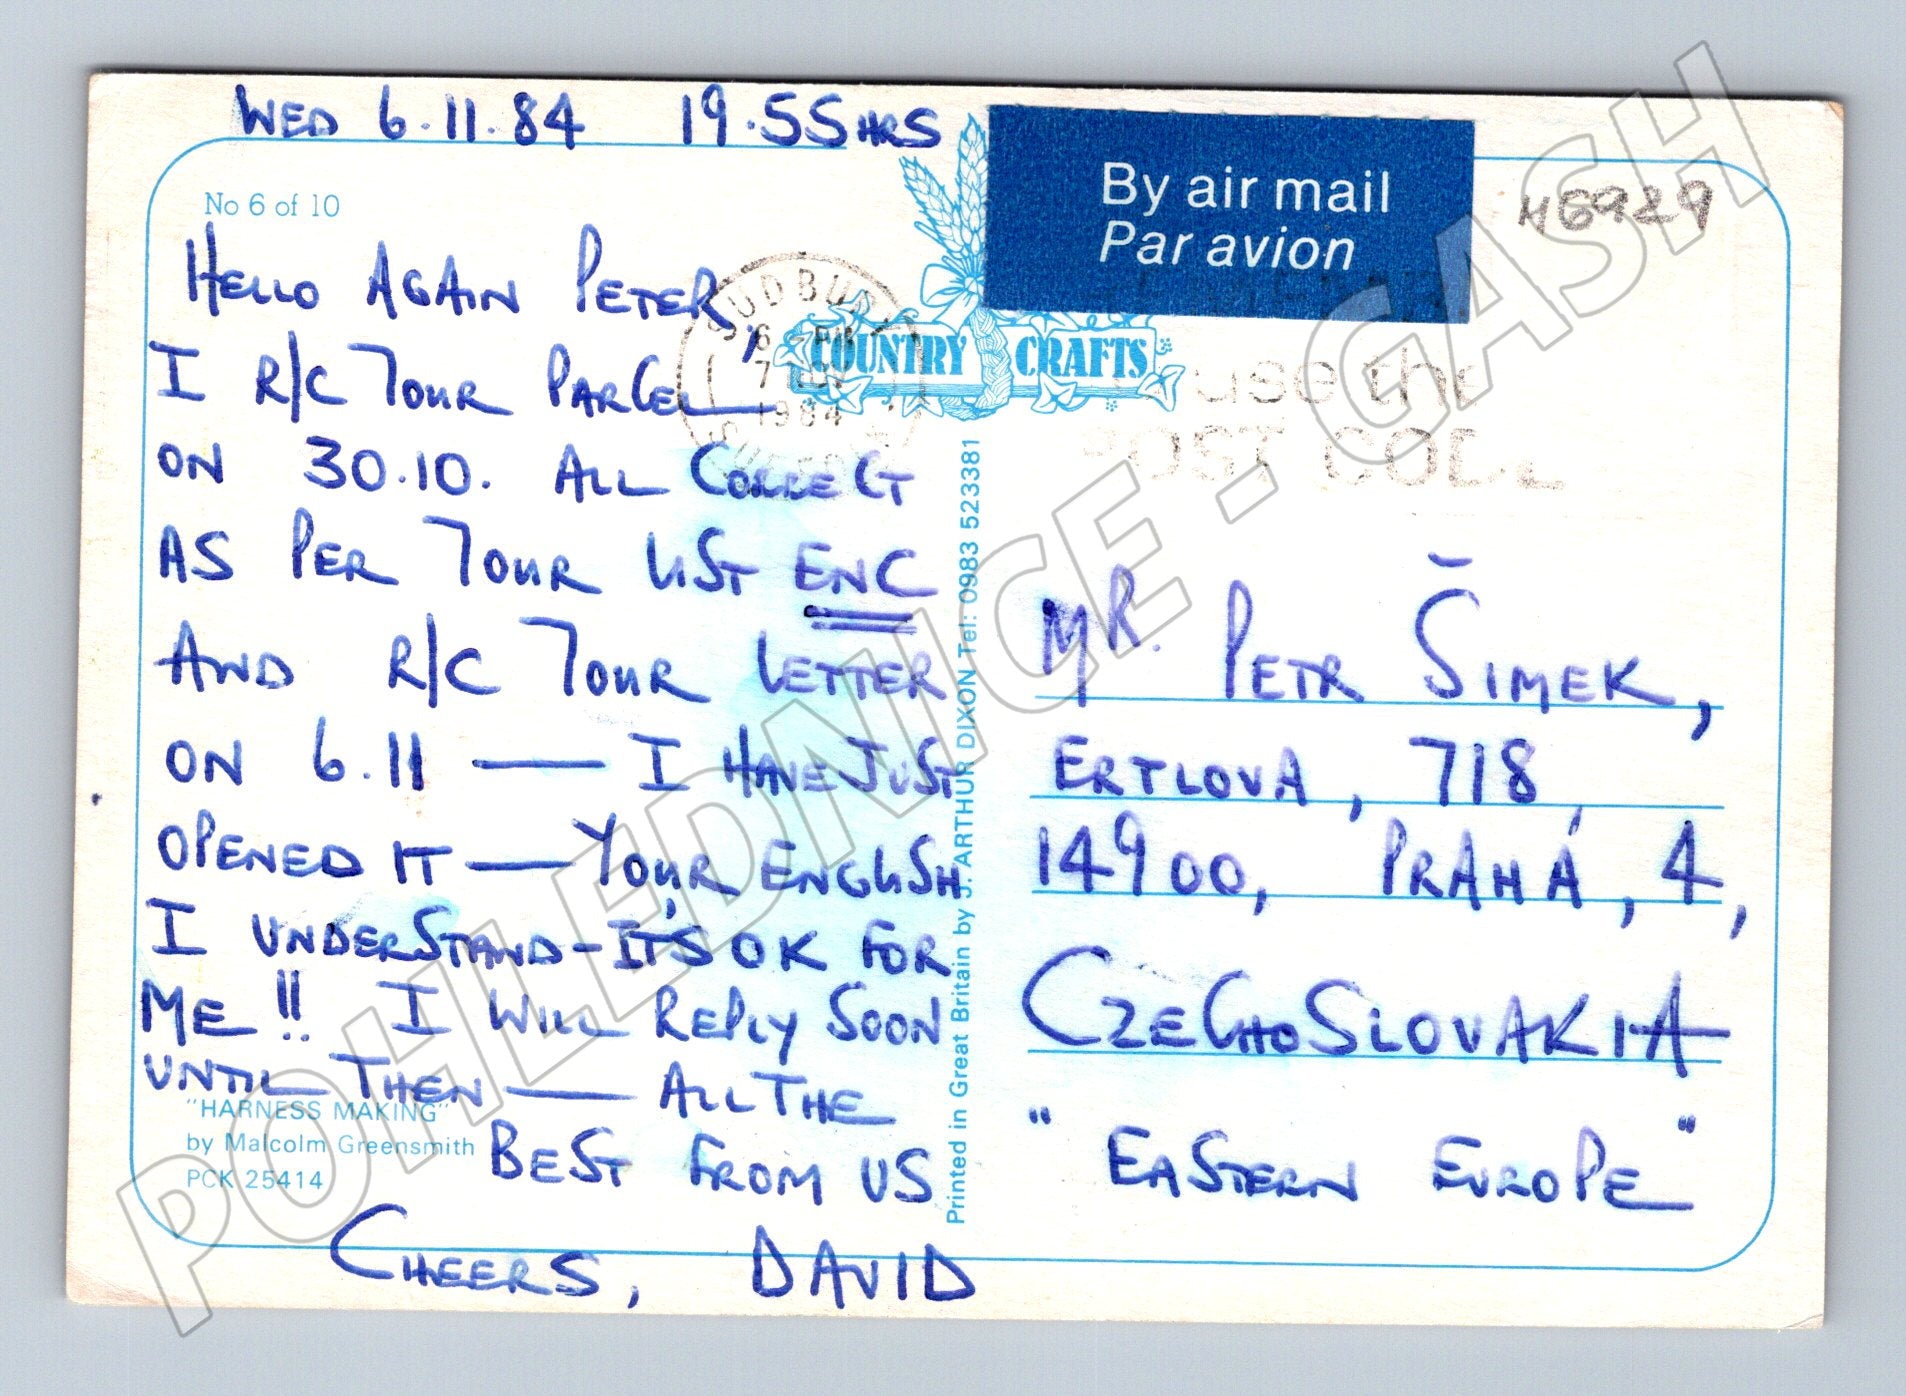 WED 6.11.84 19.55HRS
No 6 of 10
By air mail
Par avion
HELLO AGAIN PETER,
I R/C YOUR PARCEL
ON 30.10. ALL CORRECT
AS PER YOUR LIST ENC
AND R/C YOUR LETTER
ON 6.11 — I HAVE JUST
OPENED IT — YOUR ENGLISH
I UNDERSTAND - IT'S OK FOR
ME!! I WILL REPLY SOON
UNTIL THEN — ALL THE
BEST FROM US
CHEERS, DAVID
"HARNESS MAKING"
by Malcolm Greensmith
PCK 25414
SUDBURY
1984
SUFFOLK
COUNTRY CRAFTS
use the
POST CODE
Printed in Great Britain by J. ARTHUR DIXON Tel: 0983 523381
MR. PETR ŠIMEK,
ERTLOVA, 718,
14900, PRAHÁ, 4,
CZECHOSLOVAKIA
"EASTERN EUROPE"
POHLEDNICE - GASH